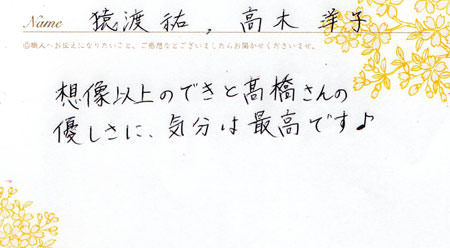 Name 猿渡祐，高木洋子
◎職人へお伝えになりたいこと、ご感想などございましたらお聞かせくださいませ。
想像以上のできと髙橋さんの
優しさに、気分は最高です♪